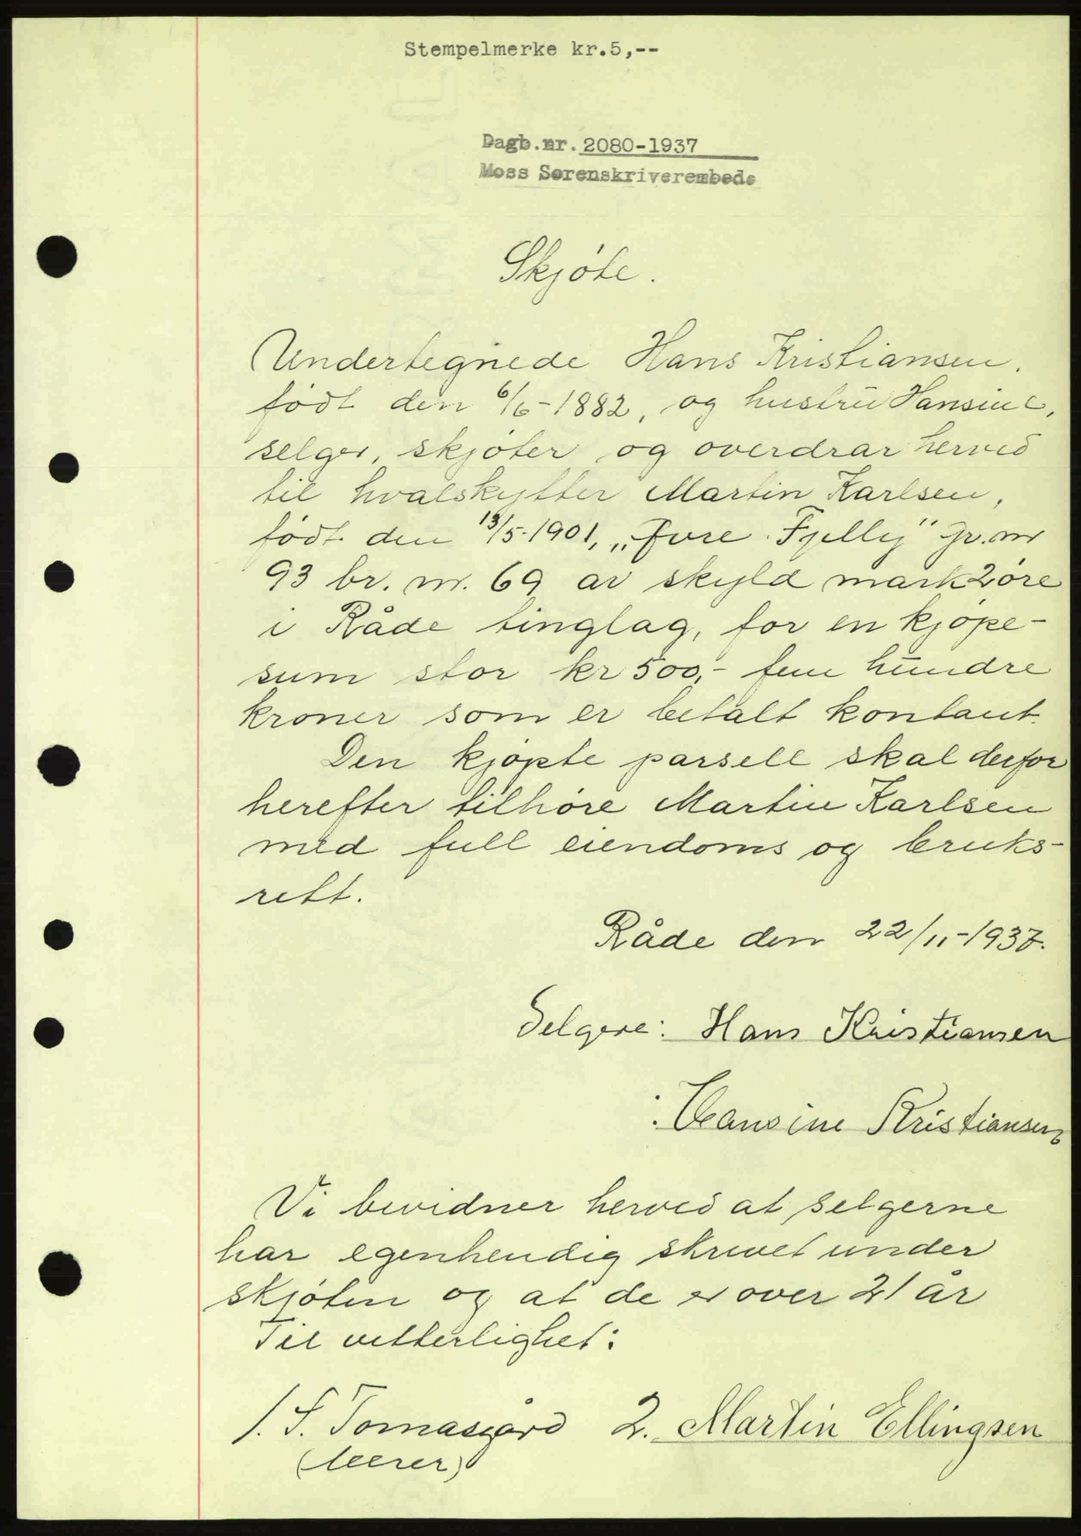 Stempelmerke kr.5,--
Dagb.nr. 2080-1937
Moss Sorenskriverembede
Skjøte.
Undertegnede Hans Kristiansen,
født den 6/6-1882, og hustru Hansine,
selger, skjøter og overdrar herved
til hvalskytter Martin Karlsen,
født den 13/5-1901, „Øvre Fjelly" gr. nr
93 br. nr. 69 av skyld mark 2 øre
i Råde tinglag, for en kjøpe-
sum stor kr 500,- fem hundre
kroner som er betalt kontant.
Den kjøpte parsell skal derfor
herefter tilhøre Martin Karlsen
med full eiendoms og bruks-
rett.
Råde den 22/11-1937.
Selgere: Hans Kristiansen
: Hansine Kristiansen
Vi bevidner herved at selgerne
har egenhendig skrevet under
skjøten og at de er over 21 år
Til vitterlighet:
1. S. Tomasgård 2. Martin Ellingsen
(lærer)